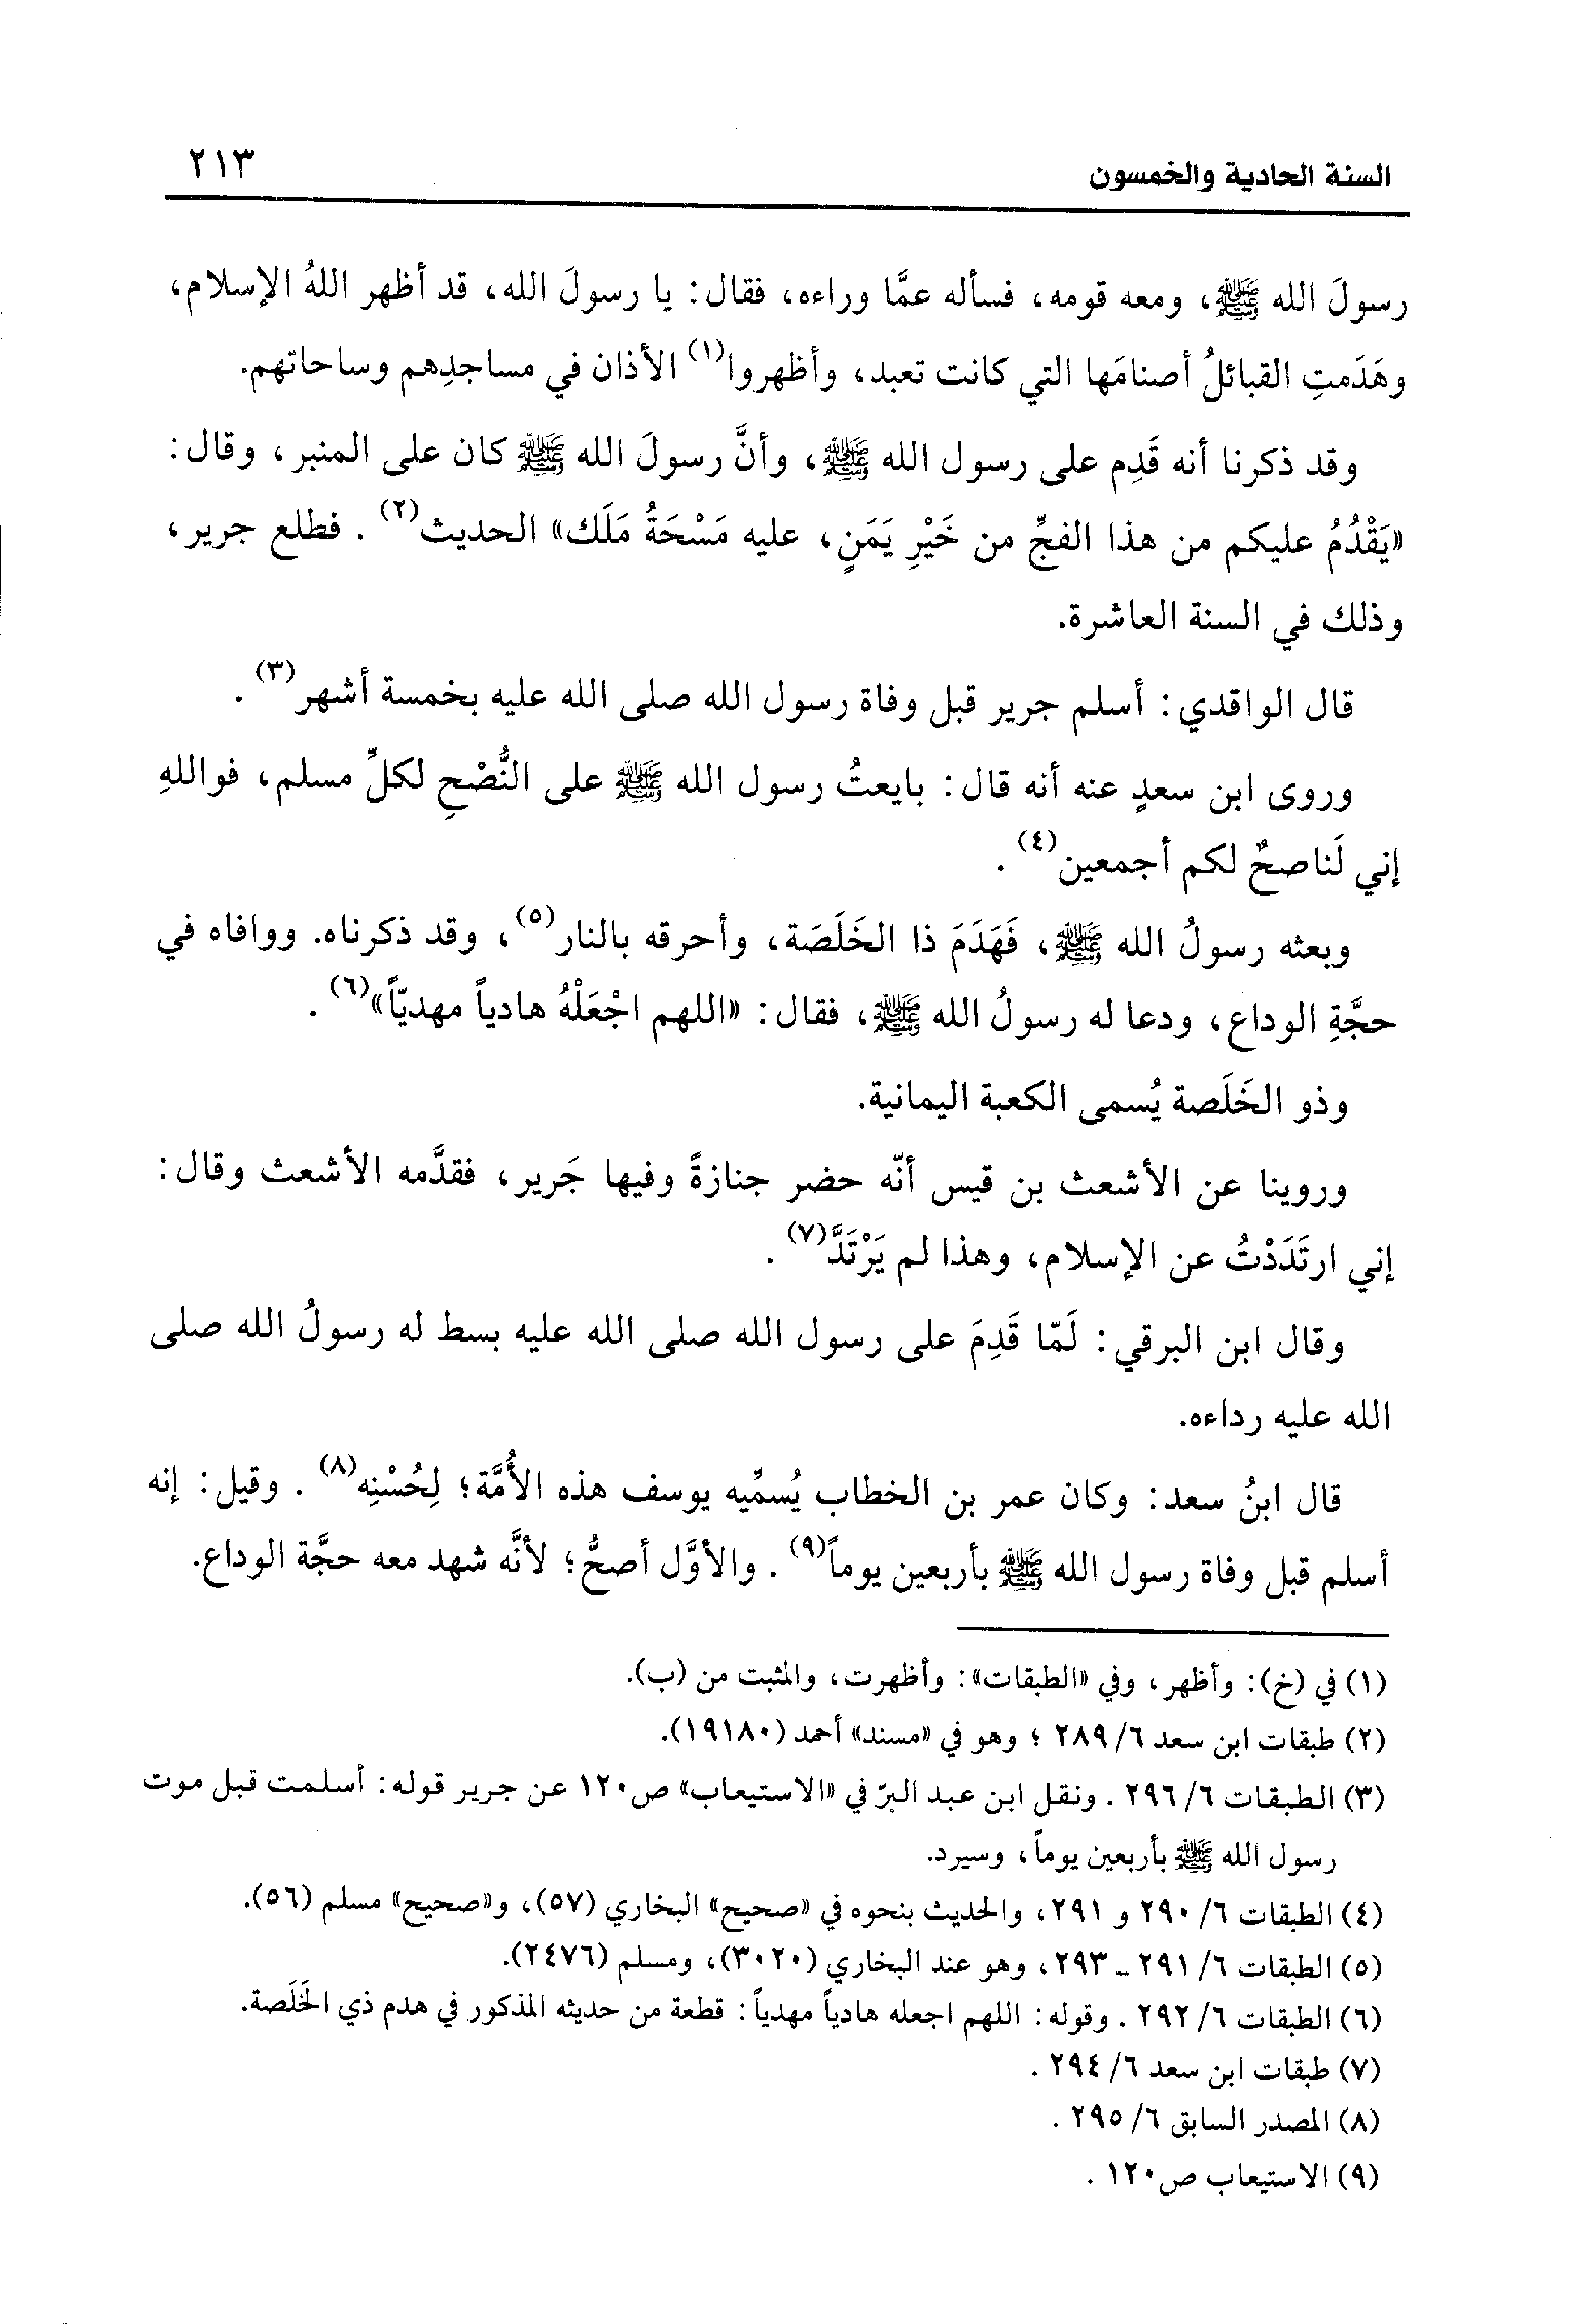 السنة الحادية والخمسون ٢١٣
رسولَ الله ﷺ، ومعه قومه، فسأله عمَّا وراءه، فقال: يا رسولَ الله، قد أظهر اللهُ الإسلام،
وهَدَمتِ القبائلُ أصنامَها التي كانت تعبد، وأظهروا(١) الأذان في مساجدِهم وساحاتهم.
وقد ذكرنا أنه قَدِم على رسول الله ﷺ، وأنَّ رسولَ الله ﷺ كان على المنبر، وقال:
«يَقْدُمُ عليكم من هذا الفجِّ من خَيْرِ يَمَنٍ، عليه مَسْحَةُ مَلَك» الحديث(٢). فطلع جرير،
وذلك في السنة العاشرة.
قال الواقدي: أسلم جرير قبل وفاة رسول الله صلى الله عليه بخمسة أشهر(٣).
وروى ابن سعدٍ عنه أنه قال: بايعتُ رسول الله ﷺ على النُّصْحِ لكلِّ مسلم، فواللهِ
إني لَناصحٌ لكم أجمعين(٤).
وبعثه رسولُ الله ﷺ، فَهَدَمَ ذا الخَلَصَة، وأحرقه بالنار(٥)، وقد ذكرناه. ووافاه في
حجَّةِ الوداع، ودعا له رسولُ الله ﷺ، فقال: «اللهم اجْعَلْهُ هادياً مهديّاً»(٦).
وذو الخَلَصة يُسمى الكعبة اليمانية.
وروينا عن الأشعث بن قيس أنّه حضر جنازةً وفيها جَرير، فقدَّمه الأشعث وقال:
إني ارتَدَدْتُ عن الإسلام، وهذا لم يَرْتَدَّ(٧).
وقال ابن البرقي: لَمّا قَدِمَ على رسول الله صلى الله عليه بسط له رسولُ الله صلى
الله عليه رداءه.
قال ابنُ سعد: وكان عمر بن الخطاب يُسمِّيه يوسف هذه الأُمَّة؛ لِحُسْنِه(٨). وقيل: إنه
أسلم قبل وفاة رسول الله ﷺ بأربعين يوماً(٩). والأوَّل أصحُّ؛ لأنَّه شهد معه حجَّة الوداع.
(١) في (خ): وأظهر، وفي «الطبقات»: وأظهرت، والمثبت من (ب).
(٢) طبقات ابن سعد ٦/ ٢٨٩ ؛ وهو في «مسند» أحمد (١٩١٨٠).
(٣) الطبقات ٦/ ٢٩٦ . ونقل ابن عبد البرّ في «الاستيعاب» ص١٢٠ عن جرير قوله: أسلمت قبل موت
رسول الله ﷺ بأربعين يوماً، وسيرد.
(٤) الطبقات ٦/ ٢٩٠ و ٢٩١، والحديث بنحوه في «صحيح» البخاري (٥٧)، و«صحيح» مسلم (٥٦).
(٥) الطبقات ٦/ ٢٩١ - ٢٩٣، وهو عند البخاري (٣٠٢٠)، ومسلم (٢٤٧٦).
(٦) الطبقات ٦/ ٢٩٢ . وقوله: اللهم اجعله هادياً مهدياً: قطعة من حديثه المذكور في هدم ذي الخَلَصة.
(٧) طبقات ابن سعد ٦/ ٢٩٤ .
(٨) المصدر السابق ٦/ ٢٩٥ .
(٩) الاستيعاب ص١٢٠ .